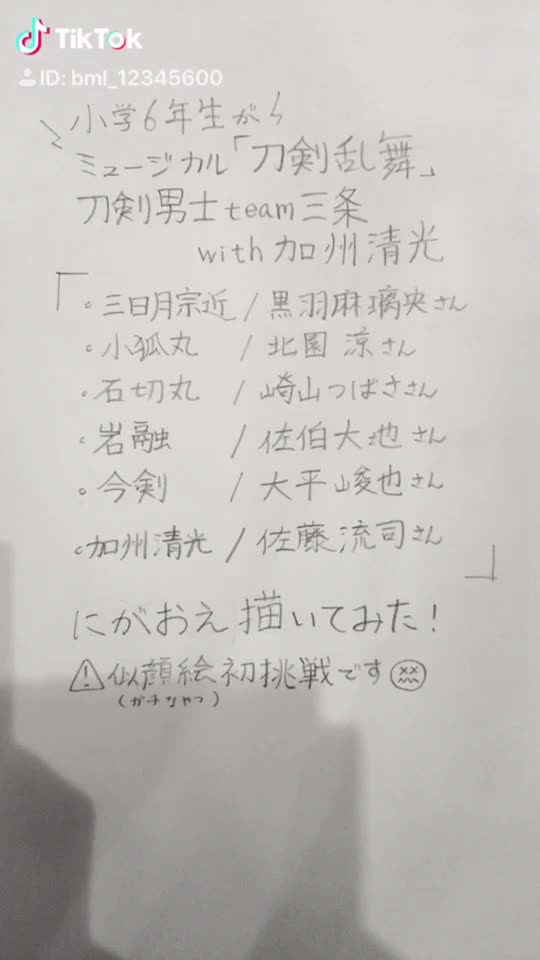 TikTok
ID: bml_12345600
小学6年生が
ミュージカル「刀剣乱舞」
刀剣男士team三条
with加州清光
「
。三日月宗近/黒羽麻璃央さん
。小狐丸/北園 涼さん
。石切丸/崎山つばささん
。岩融/佐伯大地さん
。今剣/大平峻也さん
。加州清光/佐藤流司さん
」
にがおえ描いてみた!
⚠似顔絵初挑戦です
(ガチなやつ)